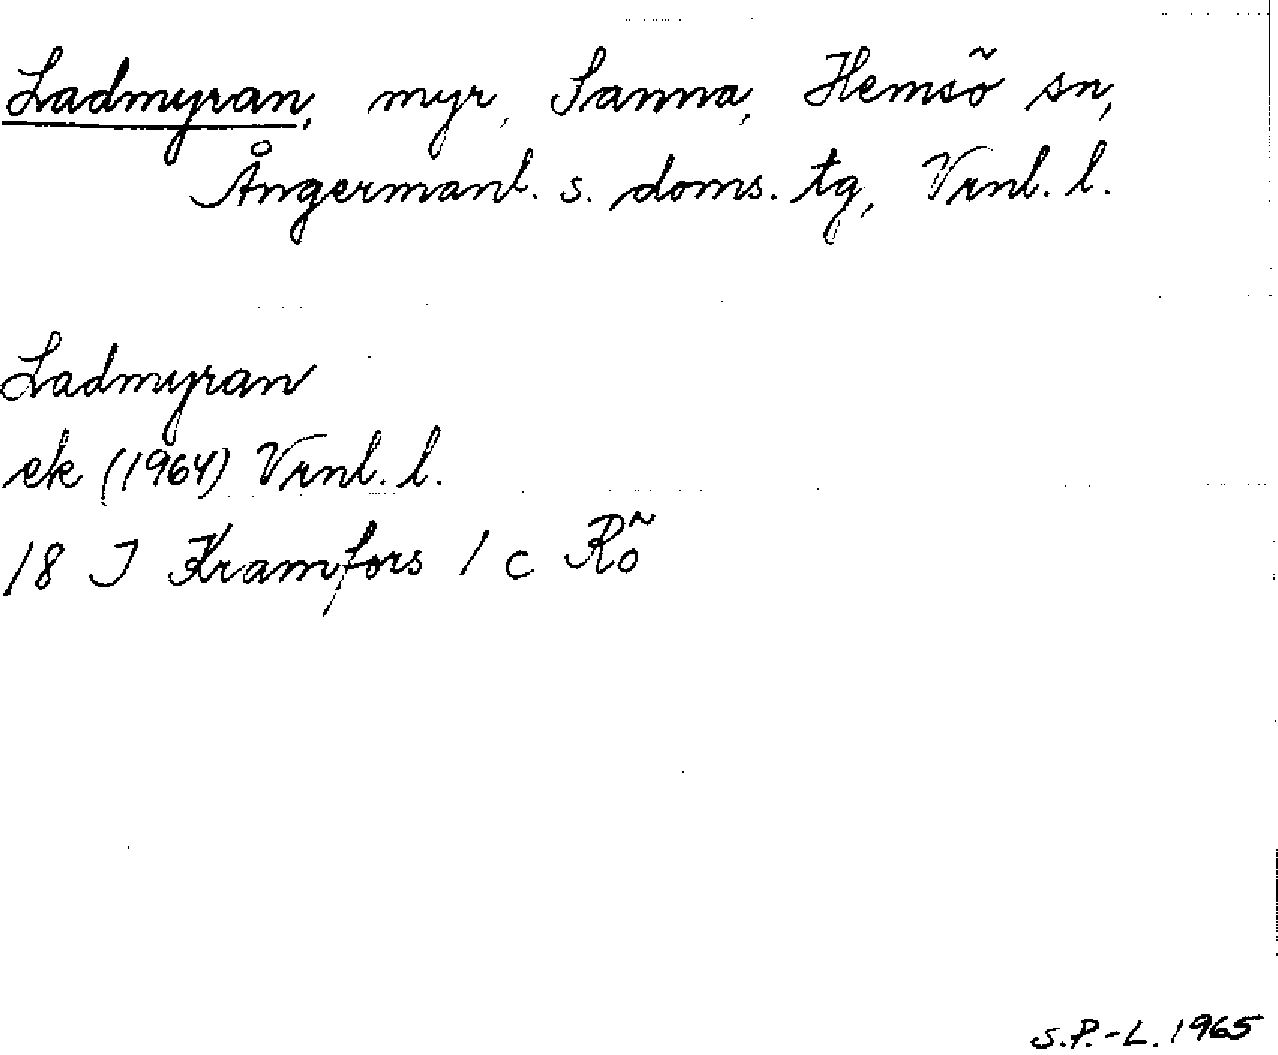 Ladmyran, myr, Sanna, Hemsö sn,
Ångermanl. s. doms. tg, Vrnl. l.
Ladmyran
ek (1964) Vrnl. l.
18 I Kramfors 1 c Rö
S.P.-L. 1965